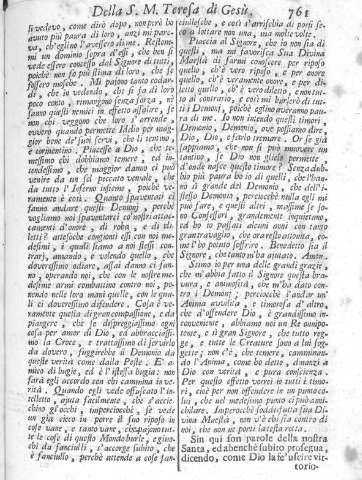 Della S. M. Teresa di Gesù. 761
li vedevo, come dirò dopo, non però ho
avuto più paura di loro, anzi mi pare-
va, ch'eglino l'avessero di me. Restom-
mi un dominio sopra d'essi
vede essere concesso dal Signore di tutti,
poichè non fo più stima di loro, che se
fossero tante mosche. Parmi tanto co-
di, che in vedendo, che si fa di loro
poco conto, rimangono senza forza, nè
sanno questi nemici in effetto assalire, se
non chi veggono che loro s'arrende,
ovvero quando permette Iddio per mag-
gior bene de' suoi servi, che li tentino,
e tormentino. Piacesse a Dio, che te-
messimo chi dobbiamo temere, ed in-
tendessimo, che maggior danno ci può
venire da un sol peccato veniale, che
da tutto l'Inferno insieme, poichè ve-
ramente è così. Quanto spaventati ci
fanno andare questi Demonj, perchè
vogliamo noi spaventarci co' nostri attac-
camenti d'onore, di roba, e di di-
letti? attesochè congiunti essi con noi me-
desimi, e quali siamo a noi stessi con-
trarj, amando, e volendo quello, che
dovressimo odiare, assai danno ci fan-
no, operando noi, che con le nostre me-
desime armi combattino contro noi, po-
nendo nelle loro mani quelle, con le qua-
li ci dovressimo difendere. Cosa è ve-
ramente questa di gran compassione, e da
piangere, e che se dispreggiassimo ogni
cosa per amor di Dio, ed abbracciassi-
mo la Croce, e trattassimo di servirlo
da dovero, fuggirebbe il Demonio da
queste verità come dalla Peste. E' a-
mico di bugie, ed è l'istessa bugia: non
farà egli accordo con chi cammina in ve-
rità. Quando egli vede offuscato l'in-
telletto, ajuta facilmente, che s'acciec-
chino gl'occhi, imperciocchè, se vede
un già cieco in porre il suo riposo in
cose vane, e tanto vane, che pajono tut-
te le cose di questo Mondo burle, e giuo-
chi da fanciulli, s'accorge subito, che
è fanciullo, perchè attende a cose fan-
ciullesche, e così s'arrischia di porsi se-
co a lottare non una, ma molte volte.
Piaccia al Signore, che io non sia di
questi, ma mi favorisca Sua Divina
Maestà di farmi conoscere per riposo
quello, che è vero riposo, e per onore
quello, ch'è veramente onore, e per di-
letto quello, ch'è vero diletto, e non tut-
to al contrario, e così mi burlerò di tut-
ti i Demonj, poichè eglino averanno pau-
ra di me. Io non intendo questi timori,
Demonio, Demonio, ove possiamo dire,
Dio, Dio, e farlo tremare. Or se già
sappiamo, che non si può muovere un
tantino, se Dio non glielo permette,
d'onde nasce questo timore? Senza dub-
bio più paura ho io di quelli, che l'han-
no sì grande del Demonio, che dell'i-
stesso Demonio, perciocchè nulla egli mi
può fare, e questi altri, massime se so-
no Confessori, grandemente inquietano,
ed ho patito alcuni anni con tanto
gran travaglio, che ora resto attonita, co-
me l'ho potuto soffrire. Benedetto sia il
Signore, che tanto m'ha ajutato. Amen.
Stimo io per una delle grandi grazie,
che m'abbia fatto il Signore questa bra-
vura, e animosità, che m'ha dato con-
tro i Demonj; perciocchè l'andar un'
Anima avvilita, e timorosa d'altro,
che d'offendere Dio, è grandissimo in-
conveniente, abbiamo noi un Re Onnipo-
tente, e sì gran Signore, che tutto reg-
ge, e tutte le Creature sono a lui sog-
gette; non c'è, che temere, camminan-
do l'Anima, come ho detto, dinanzi a
Dio con verità, e pura coscienza.
Per questo effetto vorrei io tutti i timo-
ri, cioè per non offendere in un punto co-
lui, che nel medesimo punto ci può anni-
chilare. Imperocchè soddisfatta sua Di-
vina Maestà, non v'è chi sia contro di
noi, che non ne resti abbattuto, e confuso.
Sin qui son parole della nostra
Santa, ed abenchè subito prosegua,
dicendo, come Dio la fè uscire vit-
torio-